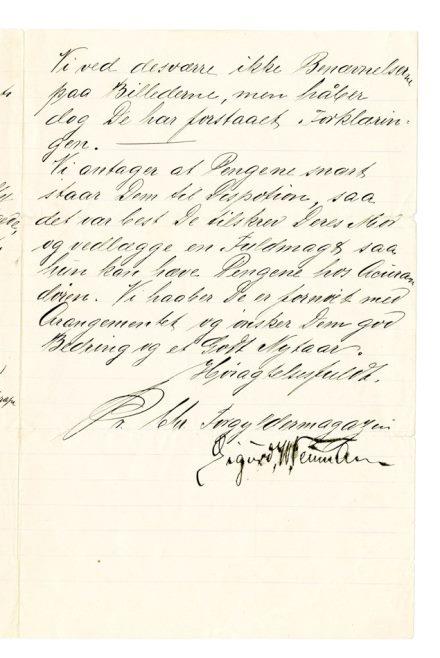 Vi ved desværre ikke Benævnelserne
paa Billederne, men håber
dog De har forstaaet Forklarin-
gen.
Vi antager at Pengene snart
staar Dem til Dispotion, saa
det var best De tilskrev Deres Mor
og vedlægge en Fuldmagt, saa
hun kan hæve Pengene hos
døren. Vi haaber De er fornøit med
Arangementet og ønsker Dem god
Bedring og et Godt Nytaar.
Høiagtelsesfuldt.
Pr. Chr. Forgyldermagazin
Sigurd